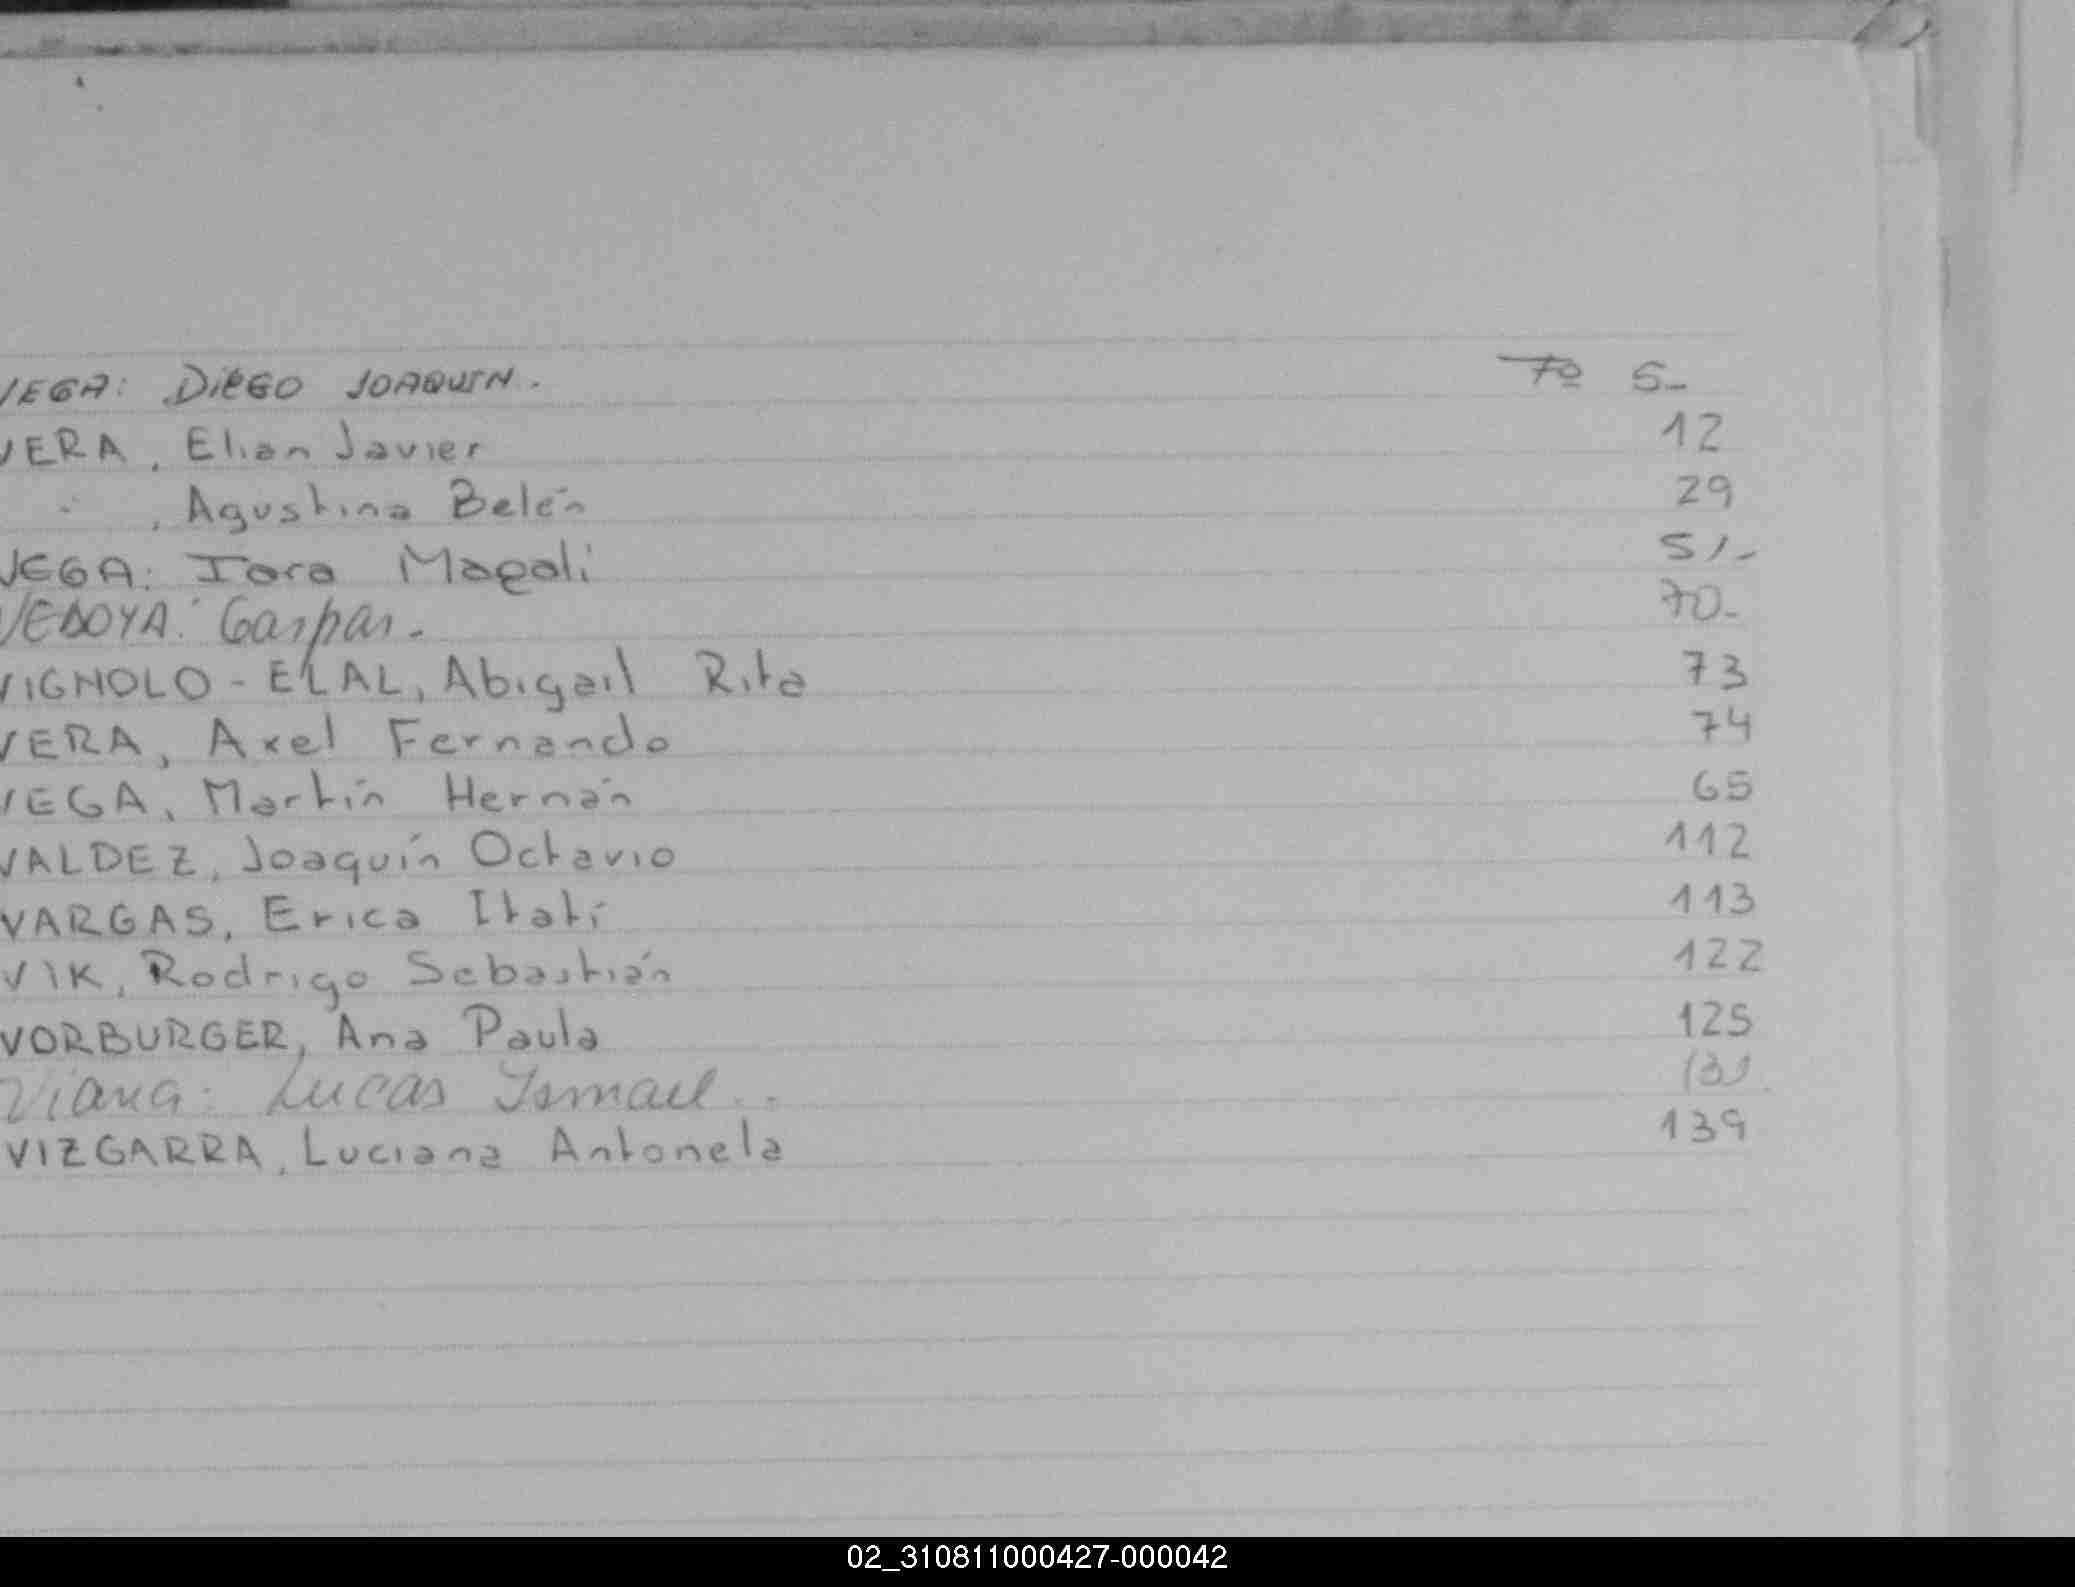 VEGA: DIEGO JOAQUIN. Fº 5-
VERA, Elian Javier 12
" , Agustina Belén 29
VEGA: Iara Magali 51-
VEDOYA: Gaspar. 70-
VIGNOLO - ELAL, Abigail Rita 73
VERA, Axel Fernando 74
VEGA, Martín Hernán 65
VALDEZ, Joaquín Octavio 112
VARGAS, Erica Itatí 113
VIK, Rodrigo Sebastián 122
VORBURGER, Ana Paula 125
Viana: Lucas Ismael..
VIZGARRA, Luciana Antonela 139
02_310811000427-000042